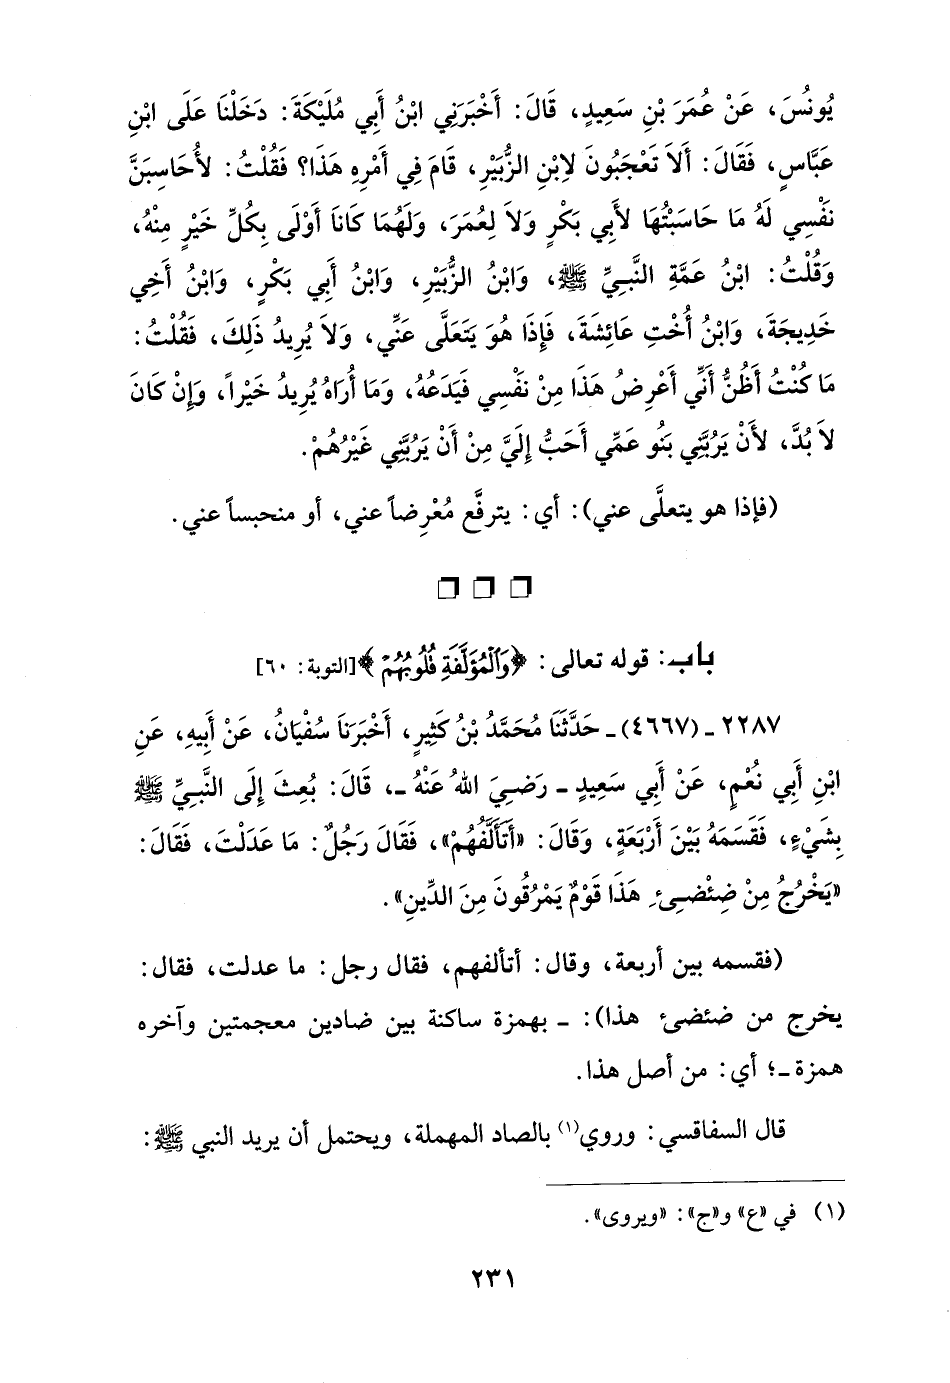 يُونُسَ، عَنْ عُمَرَ بْنِ سَعِيدٍ، قَالَ: أَخْبَرَنِي ابْنُ أَبِي مُلَيْكَةَ: دَخَلْنَا عَلَى ابْنِ
عَبَّاسٍ، فَقَالَ: أَلاَ تَعْجَبُونَ لاِبْنِ الزُّبَيْرِ، قَامَ فِي أَمْرِهِ هَذَا؟ فَقُلْتُ: لأُحَاسِبَنَّ
نَفْسِي لَهُ مَا حَاسَبْتُهَا لأَبِي بَكْرٍ وَلاَ لِعُمَرَ، وَلَهُمَا كَانَا أَوْلَى بِكُلِّ خَيْرٍ مِنْهُ،
وَقُلْتُ: ابْنُ عَمَّةِ النَّبِيِّ ﷺ، وَابْنُ الزُّبَيْرِ، وَابْنُ أَبِي بَكْرٍ، وَابْنُ أَخِي
خَدِيجَةَ، وَابْنُ أُخْتِ عَائِشَةَ، فَإِذَا هُوَ يَتَعَلَّى عَنِّي، وَلاَ يُرِيدُ ذَلِكَ، فَقُلْتُ:
مَا كُنْتُ أَظُنُّ أَنِّي أَعْرِضُ هَذَا مِنْ نَفْسِي فَيَدَعُهُ، وَمَا أُرَاهُ يُرِيدُ خَيْراً، وَإِنْ كَانَ
لاَ بُدَّ، لأَنْ يَرُبَّنِي بَنُو عَمِّي أَحَبُّ إِلَيَّ مِنْ أَنْ يَرُبَّنِي غَيْرُهُمْ.
(فإذا هو يتعلَّى عني): أي: يترفَّع مُعْرِضاً عني، أو منحبساً عني.
باب: قوله تعالى: ﴿وَٱلْمُؤَلَّفَةِ قُلُوبُهُمْ﴾ [التوبة: ٦٠]
٢٢٨٧ ـ (٤٦٦٧) ـ حَدَّثَنَا مُحَمَّدُ بْنُ كَثِيرٍ، أَخْبَرَنَا سُفْيَانُ، عَنْ أَبِيهِ، عَنِ
ابْنِ أَبِي نُعْمٍ، عَنْ أَبِي سَعِيدٍ ـ رَضِيَ اللهُ عَنْهُ ـ، قَالَ: بُعِثَ إِلَى النَّبِيِّ ﷺ
بِشَيْءٍ، فَقَسَمَهُ بَيْنَ أَرْبَعَةٍ، وَقَالَ: «أَتَأَلَّفُهُمْ»، فَقَالَ رَجُلٌ: مَا عَدَلْتَ، فَقَالَ:
«يَخْرُجُ مِنْ ضِئْضِئِ هَذَا قَوْمٌ يَمْرُقُونَ مِنَ الدِّينِ».
(فقسمه بين أربعة، وقال: أتألفهم، فقال رجل: ما عدلت، فقال:
يخرج من ضئضئ هذا): ـ بهمزة ساكنة بين ضادين معجمتين وآخره
همزة ـ؛ أي: من أصل هذا.
قال السفاقسي: وروي(١) بالصاد المهملة، ويحتمل أن يريد النبي ﷺ:
(١) في «ع» و«ج»: «ويروى».
٢٣١